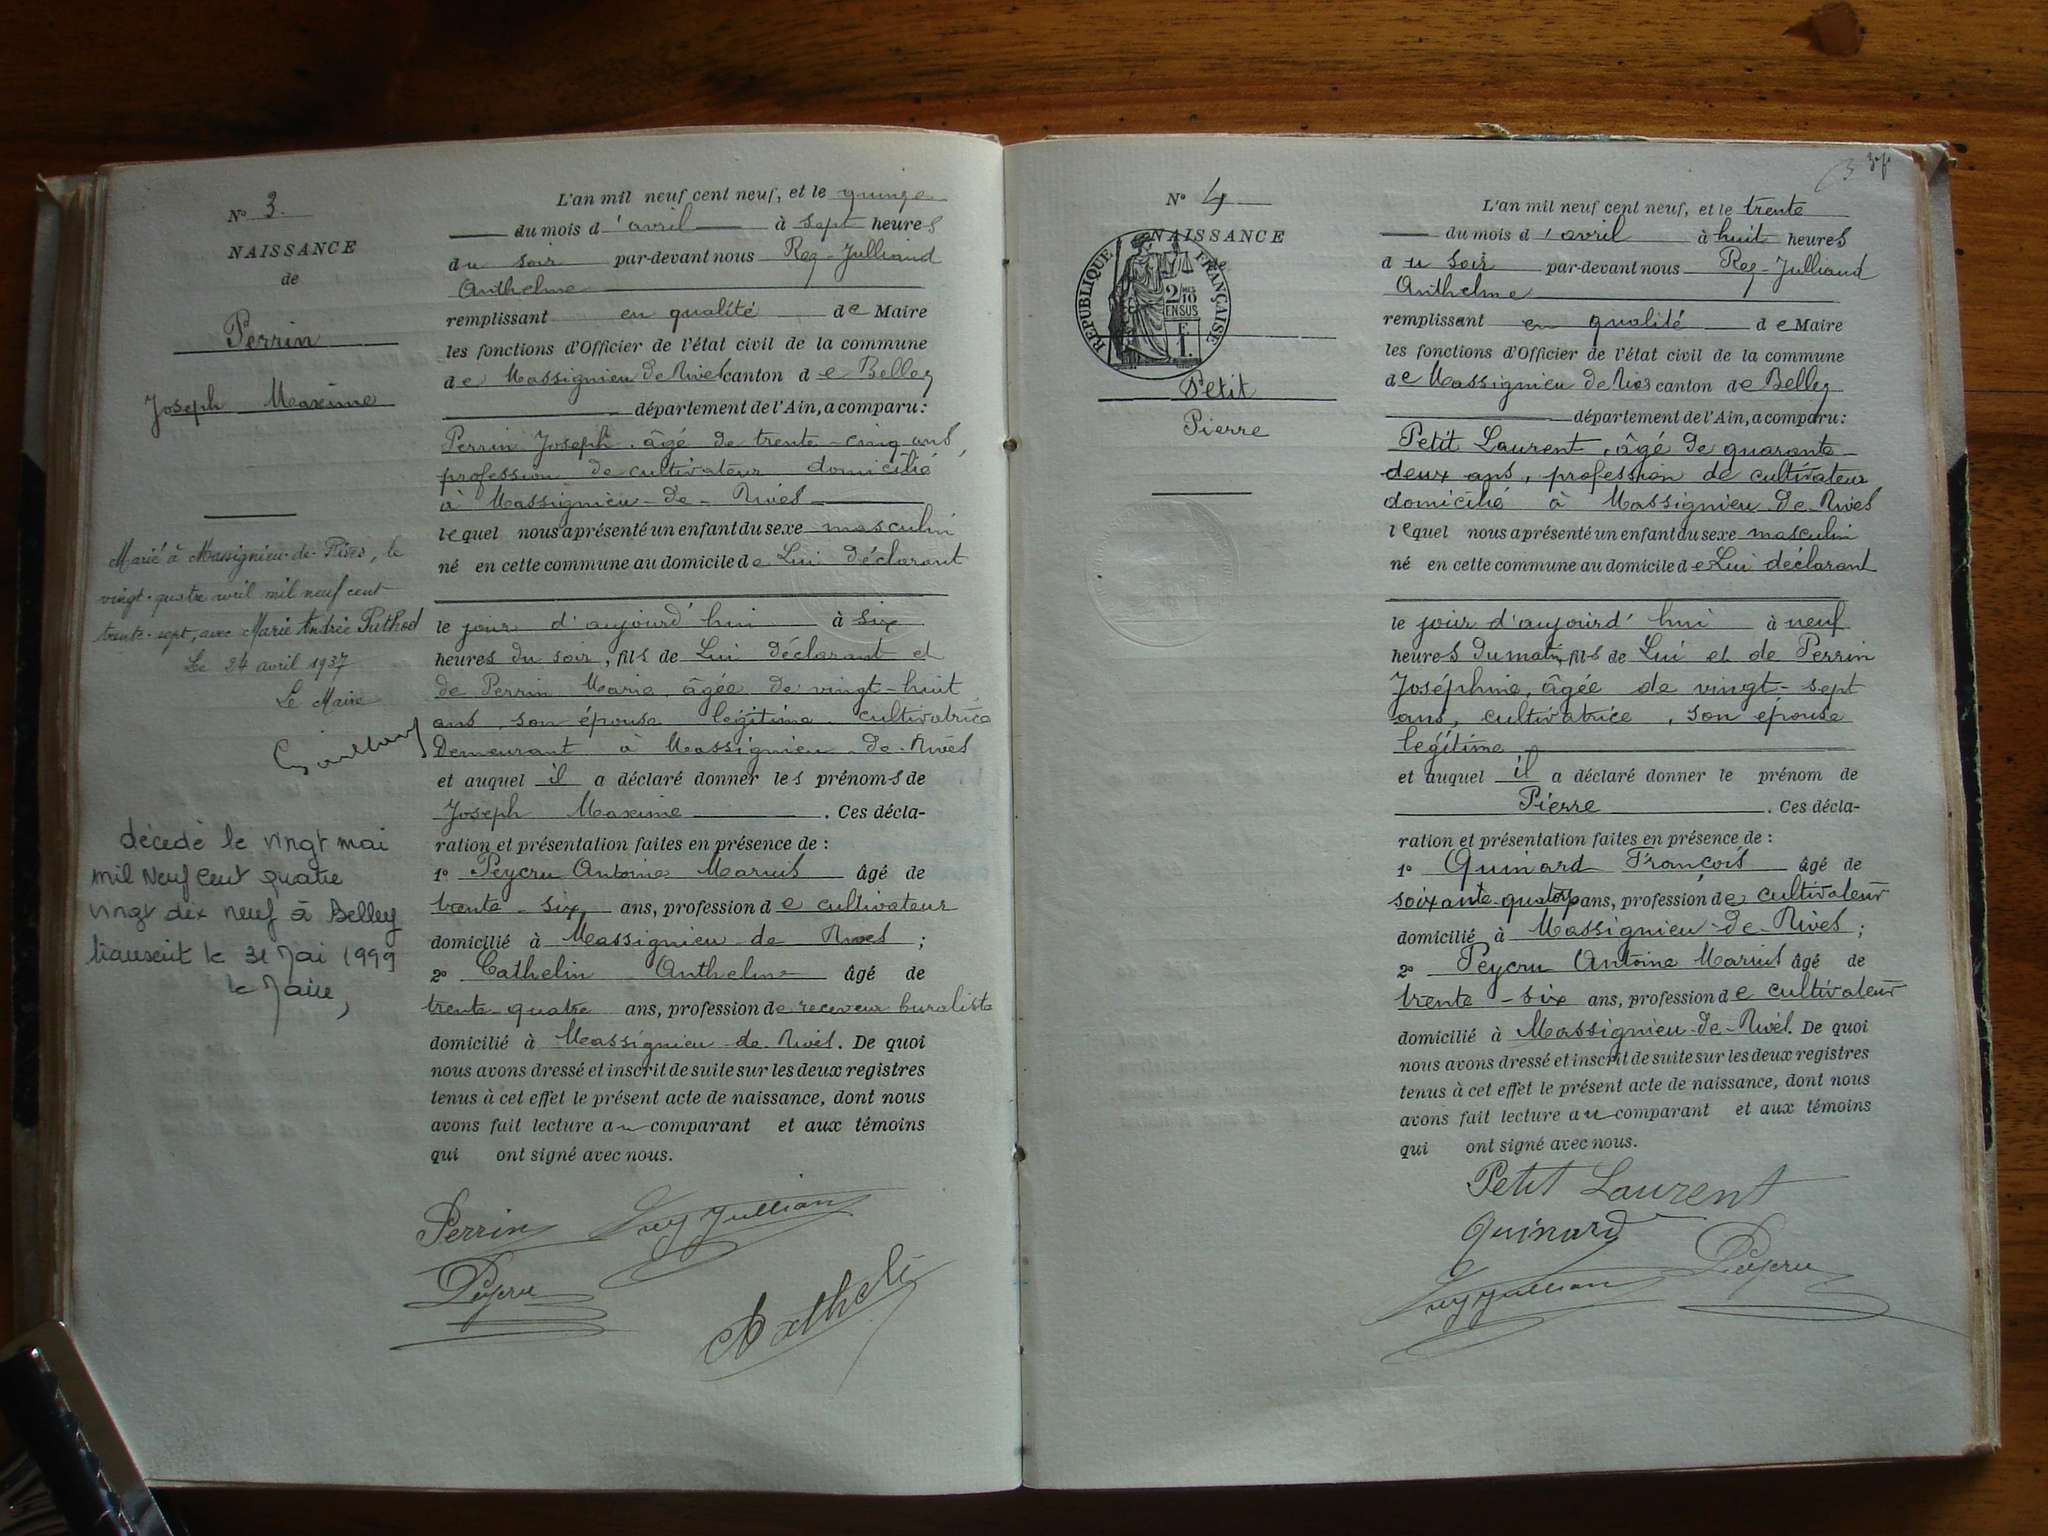 N° 3.
NAISSANCE
de
Perrin
Joseph Maxime
Marié à Massignieu-de-Rives, le
vingt-quatre avril mil neuf cent
trente-sept, avec Marie Andrée Puthod
Le 24 avril 1937
Le Maire
décédé le vingt mai
mil neuf cent quatre
vingt dix neuf à Belley
transcrit le 31 Mai 1999
le Maire,
L'an mil neuf cent neuf, et le quinze
du mois d'avril à sept heures
du soir par-devant nous Rey-Julliand
Anthelme
remplissant en qualité de Maire
les fonctions d'Officier de l'état civil de la commune
de Massignieu de Rives canton de Belley
département de l'Ain, a comparu:
Perrin Joseph, âgé de trente-cinq ans,
profession de cultivateur domicilié
à Massignieu-de-Rives
lequel nous a présenté un enfant du sexe masculin
né en cette commune au domicile de Lui déclarant
le jour d'aujourd'hui à six
heures du soir, fils de Lui déclarant et
de Perrin Marie, âgée de vingt-huit
ans, son épouse légitime cultivatrice
demeurant à Massignieu-de-Rives
et auquel il a déclaré donner les prénoms de
Joseph Maxime. Ces décla-
ration et présentation faites en présence de :
1° Peycru Antoine Marius âgé de
trente-six ans, profession de cultivateur
domicilié à Massignieu-de Rives ;
2° Cathelin Anthelme âgé de
trente quatre ans, profession de receveur buraliste
domicilié à Massignieu-de-Rives. De quoi
nous avons dressé et inscrit de suite sur les deux registres
tenus à cet effet le présent acte de naissance, dont nous
avons fait lecture au comparant et aux témoins
qui ont signé avec nous.
Perrin Rey Jullian
Peycru
Catheli
N° 4
NAISSANCE
de
REPUBLIQUE FRANÇAISE
2/10
EN SUS
1F.
Petit
Pierre
3
L'an mil neuf cent neuf, et le trente
du mois d'avril à huit heures
du soir par-devant nous Rey-Julliand
Anthelme
remplissant en qualité de Maire
les fonctions d'Officier de l'état civil de la commune
de Massignieu de Rives canton de Belley
département de l'Ain, a comparu:
Petit Laurent, âgé de quarante
deux ans, profession de cultivateur
domicilié à Massignieu-de-Rives
lequel nous a présenté un enfant du sexe masculin
né en cette commune au domicile de Lui déclarant
le jour d'aujourd'hui à neuf
heures du matin, fils de Lui et de Perrin
Joséphine, âgée de vingt-sept
ans, cultivatrice, son épouse
légitime
et auquel il a déclaré donner le prénom de
Pierre. Ces décla-
ration et présentation faites en présence de :
1° Quinard François âgé de
soixante-quatorze ans, profession de cultivateur
domicilié à Massignieu-de-Rives ;
2° Peycru Antoine Marius âgé de
trente-six ans, profession de cultivateur
domicilié à Massignieu-de-Rives. De quoi
nous avons dressé et inscrit de suite sur les deux registres
tenus à cet effet le présent acte de naissance, dont nous
avons fait lecture au comparant et aux témoins
qui ont signé avec nous.
Petit Laurent
Quinard
Rey Jullian Peycru